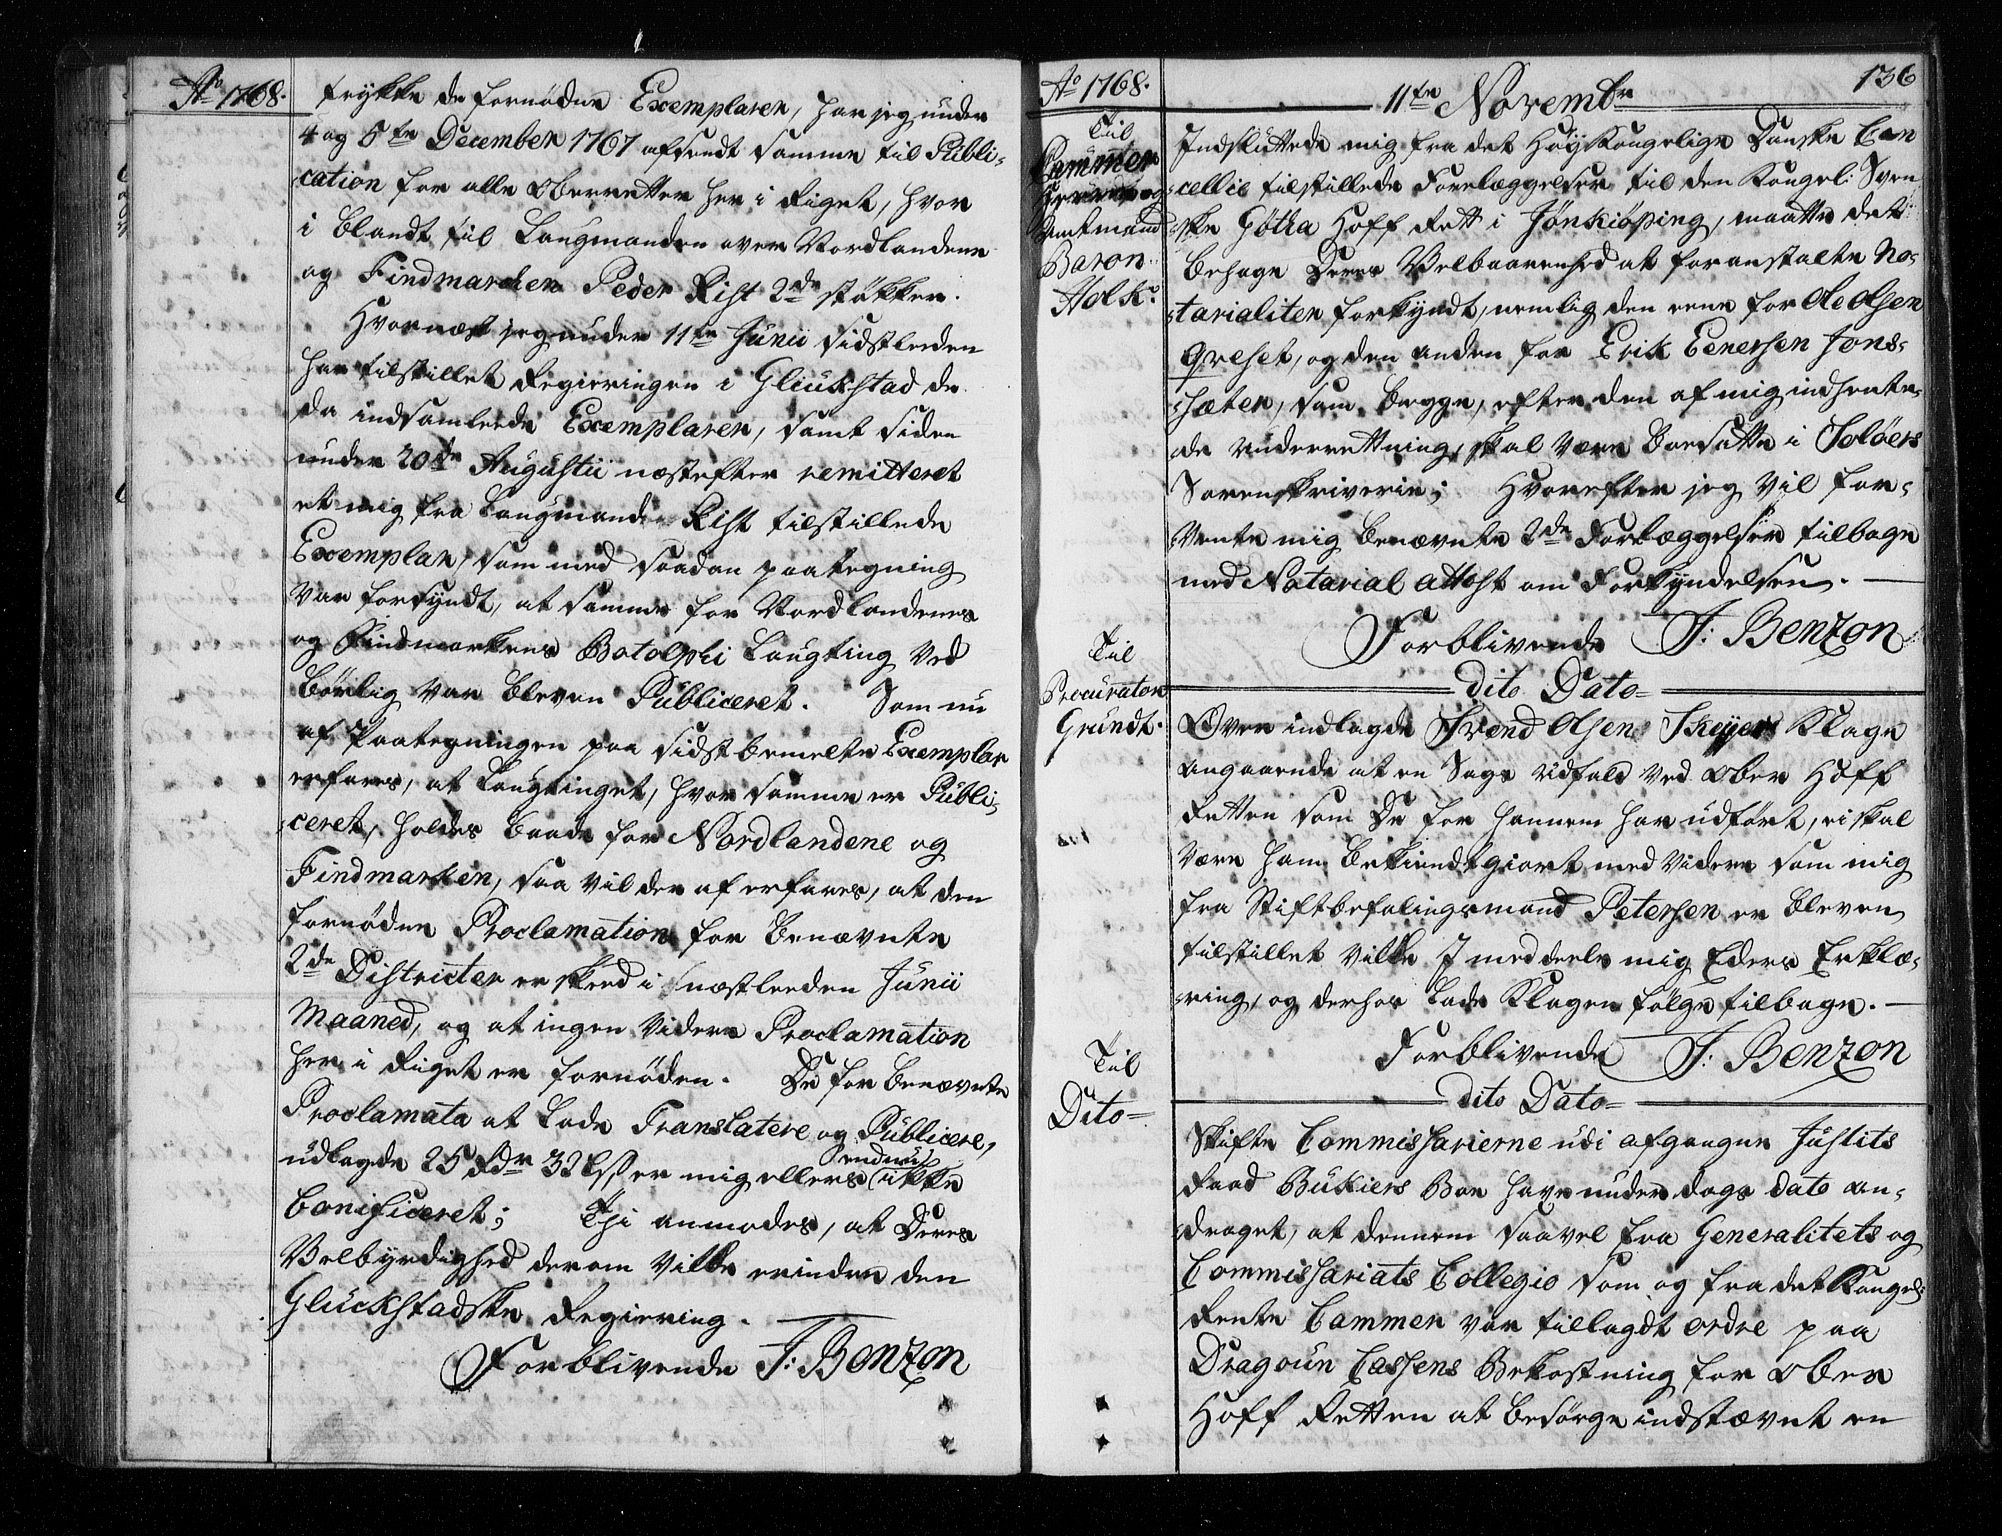 Ao 1768.
trykke de fornødne Exemplarer, har jeg under
4 og 5te December 1767 afsendt samme til Publi-
cation for alle Oberretter her i Riget, hvor
i blandt til Laugmanden over Nordlandene
og Findmarchen Peder Rist 2de støkker.
Hvornæst jeg under 11te Junii sidstleeden
har tilstillet Regieringen i Glückstad de
da indsamlede Exemplarer, samt siden
under 20de Augustii næstefter remitteret
et mig fra Laugmand Rist tilstillede
Exemplar, som med saadan paategning
var forsyndt, at samme for Nordlandenes
og Findmarkens Botolphi Laugting ved
børlig var bleven Publiceret. Som nu
af Paategningen paa sidstbemelte Exemplar
erfares, at Laugtinget, hvor samme er Publi-
ceret, holdes baade for Nordlandene og
Findmarken, saa vil der af erfares, at den
fornødne Proclamation for benævnte
2de Districter er skeed i næstleeden Junii
Maaned, og at ingen videre Proclamation
her i Riget er fornøden. De for benævnte
Proclamata at lade Translatere og Publicere,
udlagde 25 Rdr 32 ß er mig ellers endnu ikke
bonificeret; Thi anmodes, at Deres
Velbyrdighed derom ville erindre den
Glückstadske Regiering.
Forblivende F: Benzon
Ao 1768.
11te Novembr
136
Til
Cammer
Herre og
Amtmand
Baron
Holk.
Indsluttede mig fra det Høy Kongelige Danske Can
cellie tilstillede Forelæggelser til den Kongel: Sven
ske Götha Hoff Rett i Jönkiöping, maatte det
behage Deres Velbaarenhed at foranstalte No-
tarialiter forkyndt, nemlig den eene for Ole Olsen
Greset, og den anden for Erik Eenersen Jons-
sæter, som begge, efter den af mig indhente-
de underretning, skal være boesatte i Soløers
Sorenskriverie; Hvorefter jeg vil for-
vente mig benævnte 2de Forlæggelser tilbage
med Notarial Attest om Forkyndelsen.
Forblivende F: Benzon
dito Dato
Til
Procurator
Grundt.
Over indlagde Svend Olsen Skeyes Klage
angaaende at en Sags Udfald ved Ober Hoff
Retten som De for hannem har udført, ei skal
være ham bekiendtgiort med videre som mig
fra Stiftbefalingsmand Petersen er bleven
tilstillet ville I meddeele mig Eders Erklæ-
ring, og derhos lade Klagen følge tilbage.
Forblivende F: Benzon
dito Dato
Til
Dito
Skifte Commissarierne udi afgangne Justits
Raad Bükiers Boe have under dags dato an-
draget, at dennem saavel fra Generalitets og
Commissariats Collegio som og fra det Kongel:
Rente Cammer var tillagdt ordre paa
Dragoun Cassens Bekostning for Ober
Hoff Retten at besørge indstævnet en